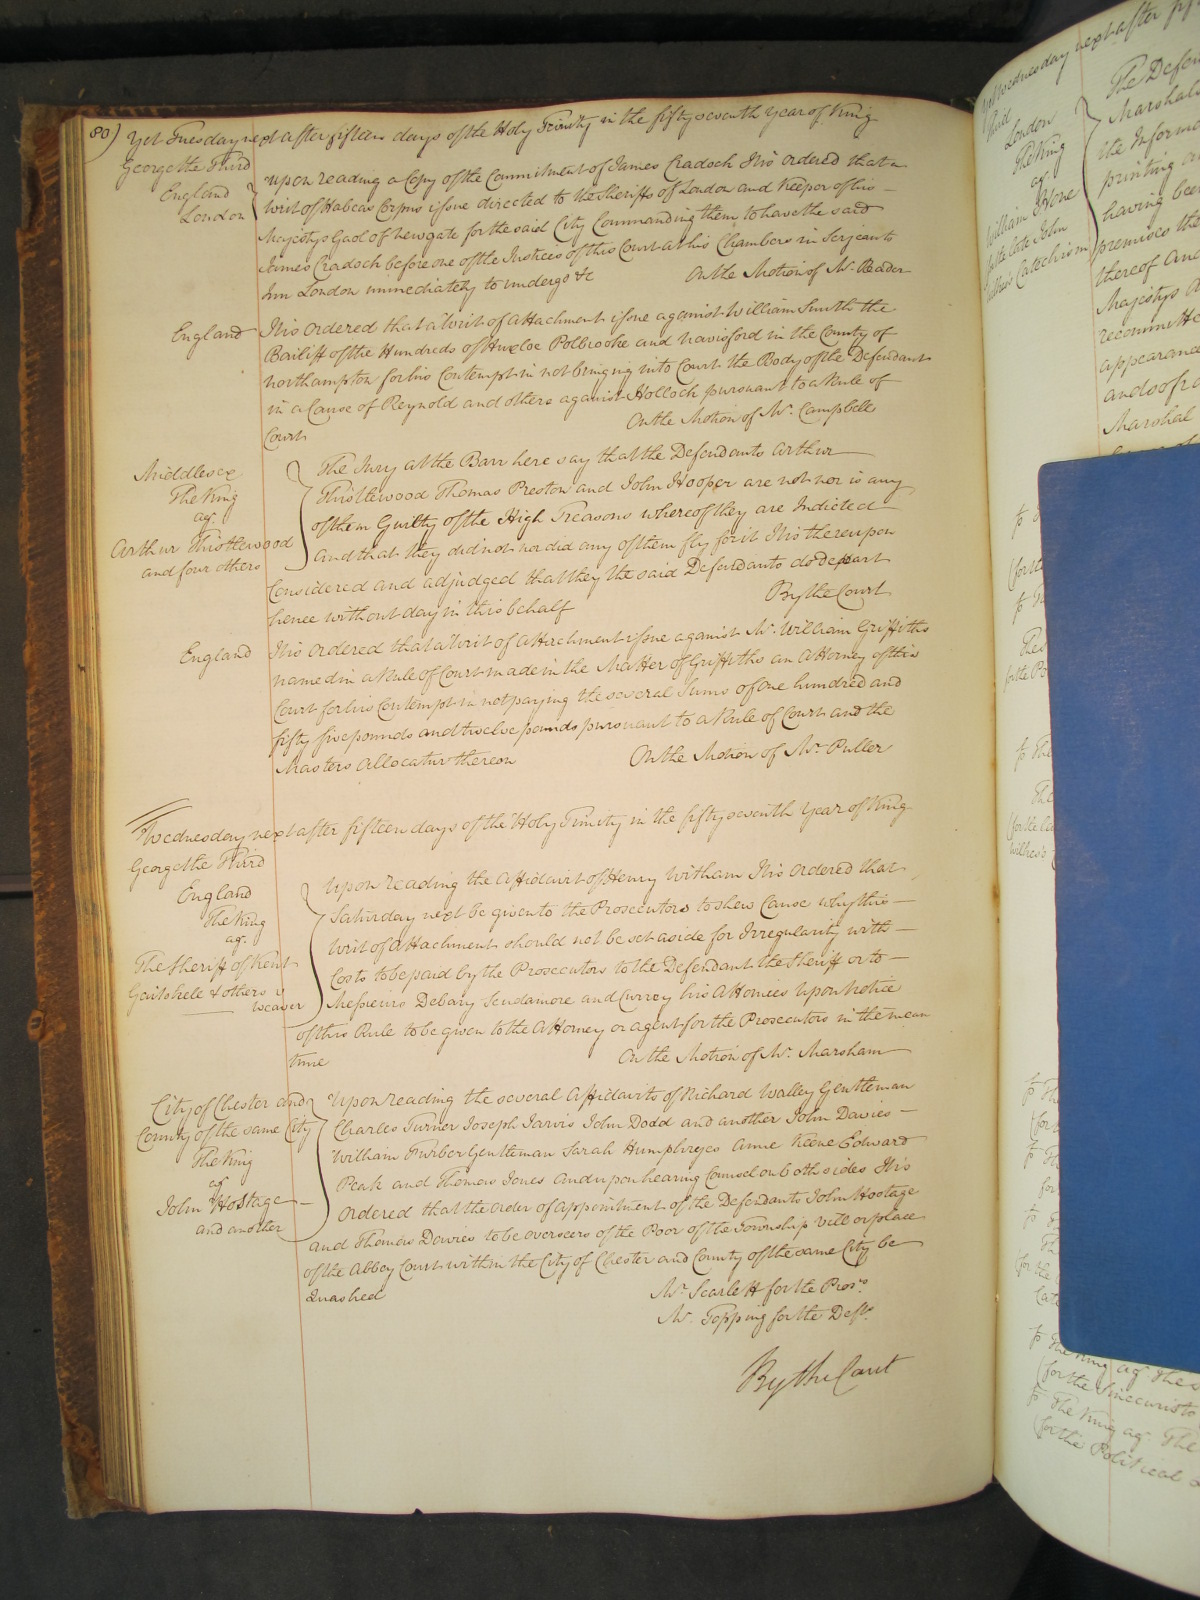 80) Yet Tuesday next after fifteen days of the Holy Trinity in the fifty seventh Year of King
George the Third
England
London
Upon reading a Copy of the Commitment of James Cradock It is ordered that a
Writ of Habeas Corpus issue directed to the Sheriffs of London and Keeper of his
Majestys Gaol of Newgate for the said City Commanding them to have the said
James Cradock before one of the Justices of this Court at his Chambers in Serjeants
Inn London immediately to undergo &c On the Motion of Mr. Reader
England It is ordered that a Writ of Attachment issue against William Smith the
Bailiff of the Hundreds of Huxloe Polbrooke and Navisford in the County of
Northampton for his Contempt in not bringing into Court the Body of the Defendant
in a Cause of Reynold and others against Hollock pursuant to a Rule of
Court On the Motion of Mr. Campbell
Middlesex
The King
agt.
Arthur Thistlewood
and four others
The Jury at the Barr here say that the Defendants Arthur
Thistlewood Thomas Preston and John Hooper are not nor is any
of them Guilty of the High Treasons whereof they are Indicted
and that they did not nor did any of them fly for it It is thereupon
Considered and adjudged that they the said Defendants do depart
hence without day in this behalf By the Court
England It is ordered that a Writ of Attachment issue against Mr. William Griffiths
named in a Rule of Court made in the Matter of Griffiths an Attorney of this
Court for his Contempt in not paying the several Sums of One hundred and
fifty five pounds and twelve pounds pursuant to a Rule of Court and the
Masters allocatur thereon On the Motion of Mr. Puller
Wednesday next after fifteen days of the Holy Trinity in the fifty seventh Year of King
George the Third
England
The King
agt.
The Sheriff of Kent
Gaitskele & others v
Weaver
Upon reading the Affidavit of Henry Witham It is ordered that
Saturday next be given to the Prosecutors to shew Cause why this
Writ of Attachment should not be set aside for Irregularity with
Costs to be paid by the Prosecutors to the Defendant the Sheriff or to
Messieurs Debary Scudamore and Currey his Attornies Upon Notice
of this Rule to be given to the Attorney or agent for the Prosecutors in the mean
time On the Motion of Mr. Marsham
City of Chester and
County of the same City
The King
agt
John Hostage
and another
Upon reading the several Affidavits of Richard Walley Gentleman
Charles Turner Joseph Jarvis John Dodd and another John Davies
William Furber Gentleman Sarah Humphreyes Anne Keene Edward
Peak and Thomas Jones And upon hearing Counsel on both sides It is
ordered that the order of appointment of the Defendants John Hostage
and Thomas Davies to be overseers of the Poor of the Township vill or place
of the Abbey Court within the City of Chester and County of the same City be
Quashed Mr. Scarlett for the Prosrs.
Mr. Topping for the Defts.
By the Court
Yet Wednesday next after
said
London
The King
agt
William Hone
for the late John
Wilkes's Catechism
The Defen
Marshals
the Informa
printing an
having been
premises the
thereof And
Majestys
recommitte
appearance
and so fro
Marshal
The King agt. The
(for the Sinecurists
The King agt. The
(for the Political